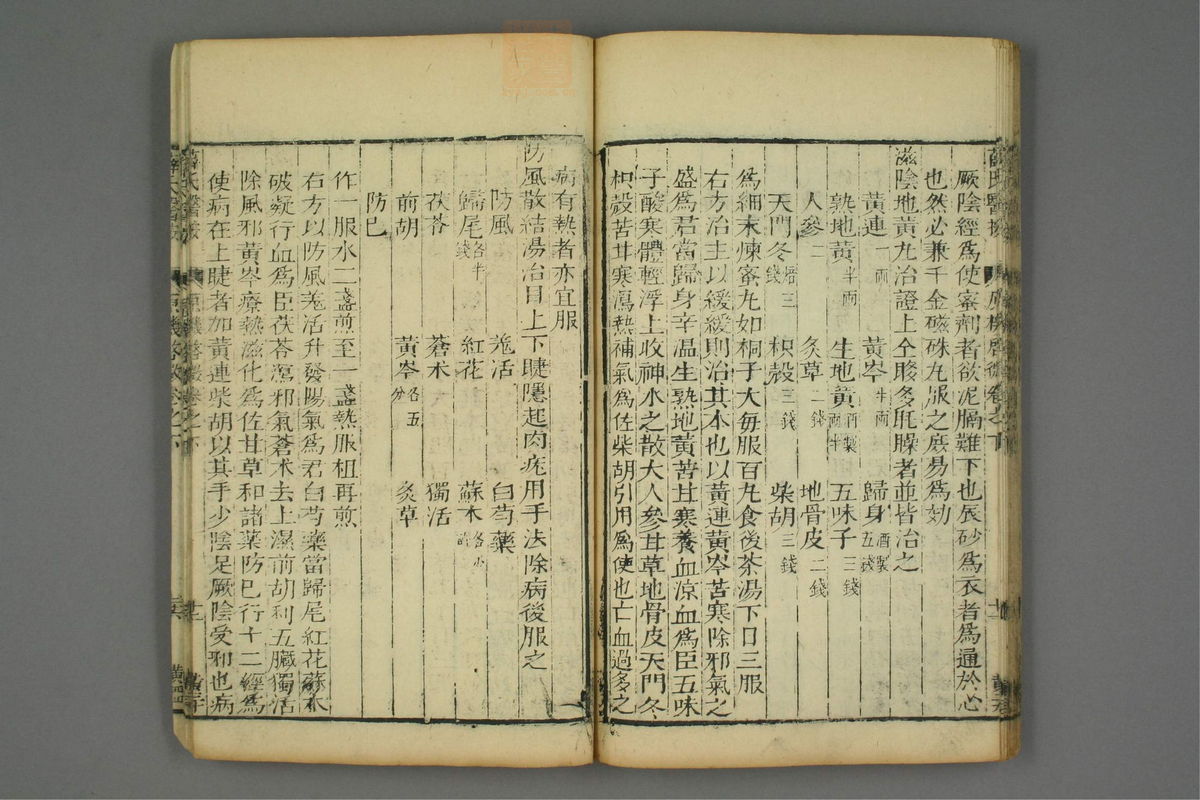 厥陰經爲使蜜劑者欲泥膈難下也辰砂爲衣者爲通於心
也然必兼千金磁硃丸服之庶易爲効
滋陰地黃丸治證上仝眵多眊矂者並皆治之
黃連一兩 黃岑半兩 歸身酒製五錢
熟地黃半兩 生地黃酒製兩半 五味子三錢
人參二 炙草二錢 地骨皮二錢
天門冬焙三錢 枳殼三錢 柴胡三錢
爲細末煉蜜丸如桐子大每服百丸食後茶湯下日三服
右方治主以緩緩則治其本也以黃連黃岑苦寒除邪氣之
盛爲君當歸身辛溫生熟地黃苦甘寒養血凉血爲臣五味
子酸寒體輕浮上收神水之散大人參甘草地骨皮天門冬
枳殼苦甘寒瀉熱補氣爲佐柴胡引用爲使也亡血過多之
病有熱者亦宜服
防風散結湯治目上下睫隱起肉疣用手法除病後服之
防風 羗活 白芍藥
歸尾各半錢 紅花 蘇木各少許
茯苓 蒼朮 獨活
前胡 黃岑各五分 炙草
防巳
作一服水二盞煎至一盞熱服柤再煎
右方以防風羗活升發陽氣爲君白芍藥當歸尾紅花蘇木
破凝行血爲臣茯苓瀉邪氣蒼朮去上濕前胡利五臟獨活
除風邪黃岑療熱滋化爲佐甘草和諸藥防巳行十二經爲
使病在上睫者加黃連柴胡以其手少陰足厥陰受邪也病